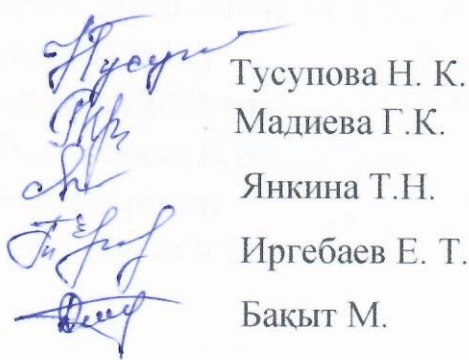 Тусупова Н. К.
Мадиева Г.К.
Янкина Т.Н.
Иргебаев Е. Т.
Бақыт М.